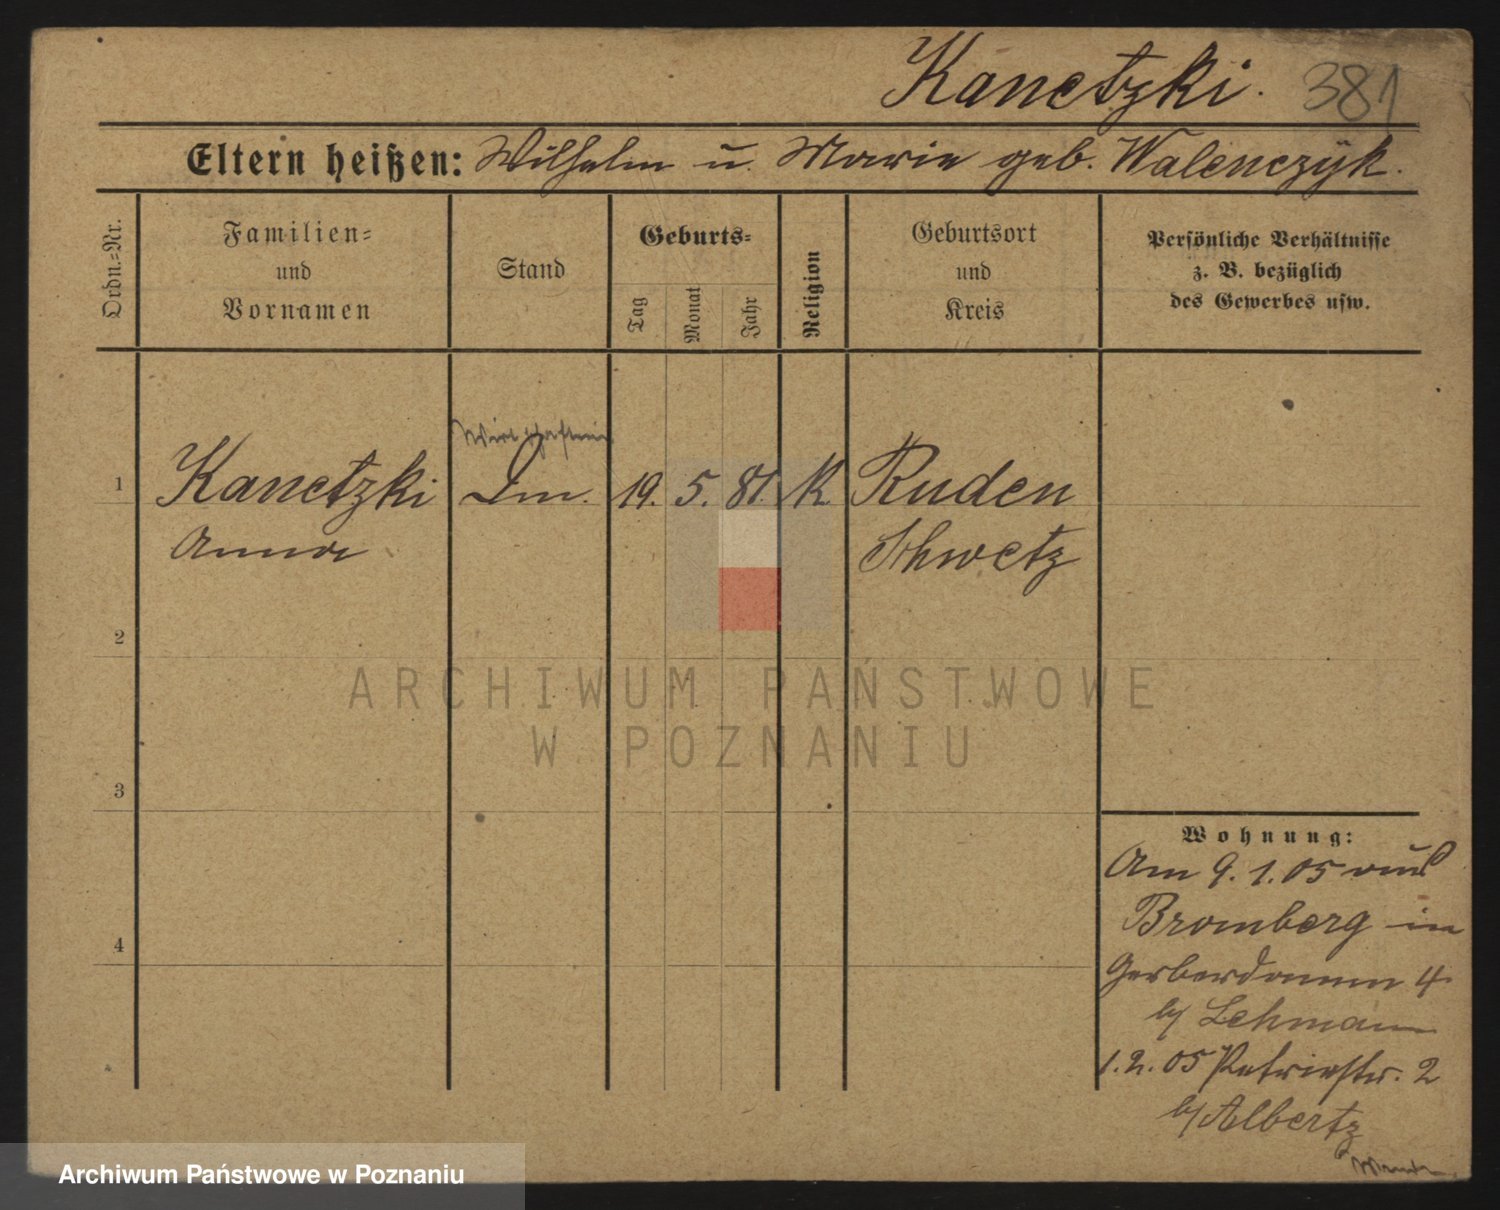 Kanetzki. 381
Eltern heißen: Wilhelm u. Marie geb. Walenczyk.
Ordn.-Nr.
Familien-
und
Vornamen
Stand
Geburts-
Tag
Monat
Jahr
Religion
Geburtsort
und
Kreis
Persönliche Verhältnisse
z. B. bezüglich
des Gewerbes usw.
Wirtschafterin
1 Kanetzki Dm. 19. 5. 81. K Ruden
Anna Schwetz
2
3
4
ARCHIWUM PAŃSTWOWE
W POZNANIU
Wohnung:
Am 9. 1. 05 aus
Bromberg in
Gerberdamm 4
b/ Lehmann
1. 2. 05 Patristr. 2
b/ Albertz
Archiwum Państwowe w Poznaniu